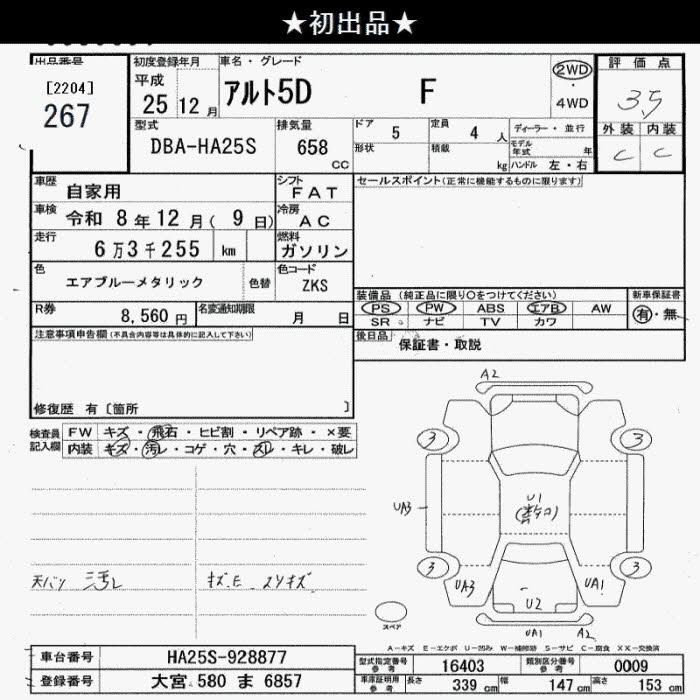 ★初出品★
出品番号
[2204]
267
初度登録年月
平成
25 12 月
車名・グレード
アルト5D F
2WD
4WD
評価点
3.5
外装 内装
C C
型式
DBA-HA25S
排気量
658
CC
ドア 5
定員 4 人
ディーラー・並行
形状
積載 kg
モデル年式 年
ハンドル 左・右
車歴 自家用
シフト FAT
セールスポイント(正常に機能するものに限ります)
車検 令和 8年 12月( 9日)
冷房 AC
走行 6万3千255 km
燃料 ガソリン
色 エアブルーメタリック
色替
色コード ZKS
R券 8,560 円
名変通知期限 月 日
装備品 (純正品に限り○をつけてください)
PS PW ABS エアB AW
SR ナビ TV カワ
新車保証書
有・無
注意事項申告欄(不具合内容等は具体的に記入して下さい)
後日品 保証書・取説
修復歴 有〔箇所 〕
検査員記入欄
FW キズ・飛石・ヒビ割・リペア跡・×要
内装 キズ・汚レ・コゲ・穴・スレ・キレ・破レ
天バリ 汚レ
キズ.E スリキズ
A2
3 3
UA3
U1
3 3
UA3 UA1
U2
UA1 A2
スペア
A-キズ E-エクボ U-凹み W-補修跡 S-サビ C-腐食 XX-交換済
車台番号 HA25S-928877
登録番号 大宮 580 ま 6857
型式指定番号 参考 16403
類別区分番号 参考 0009
車庫証明用 参考 長さ 339 cm 幅 147 cm 高さ 153 cm